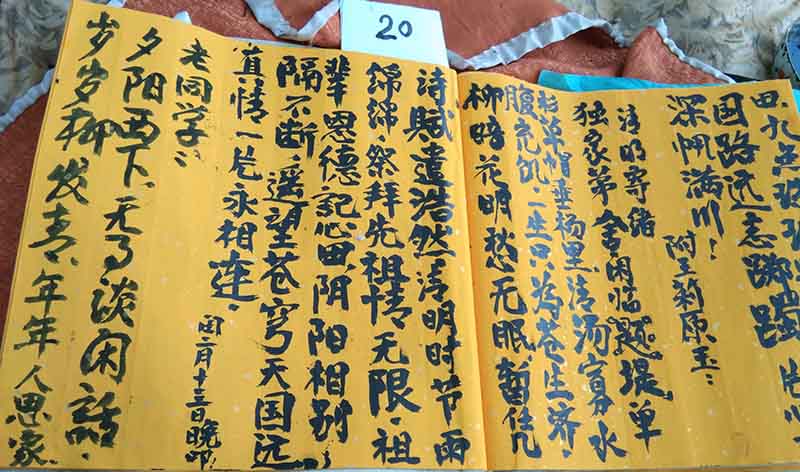 20
田九点
国路远志踯躅
深帆满川！
附王莉原玉：
清明寄绪
独家第舍闲临题堤单
衫草帽垂杨里，清汤寡水
腹充饥，一生只为苍生济，
柳暗花明愁无眠，暂凭
诗赋遣浩然，清明时节雨
绵绵，祭拜先祖情无限，祖
辈恩德記心田，阴阳相别
隔不断，遥望苍穹天国远，
真情一片永相连，
闰二月十三日晚
老同学：
夕阳西下，无事谈闲話，
岁岁柳发青，年年人思家